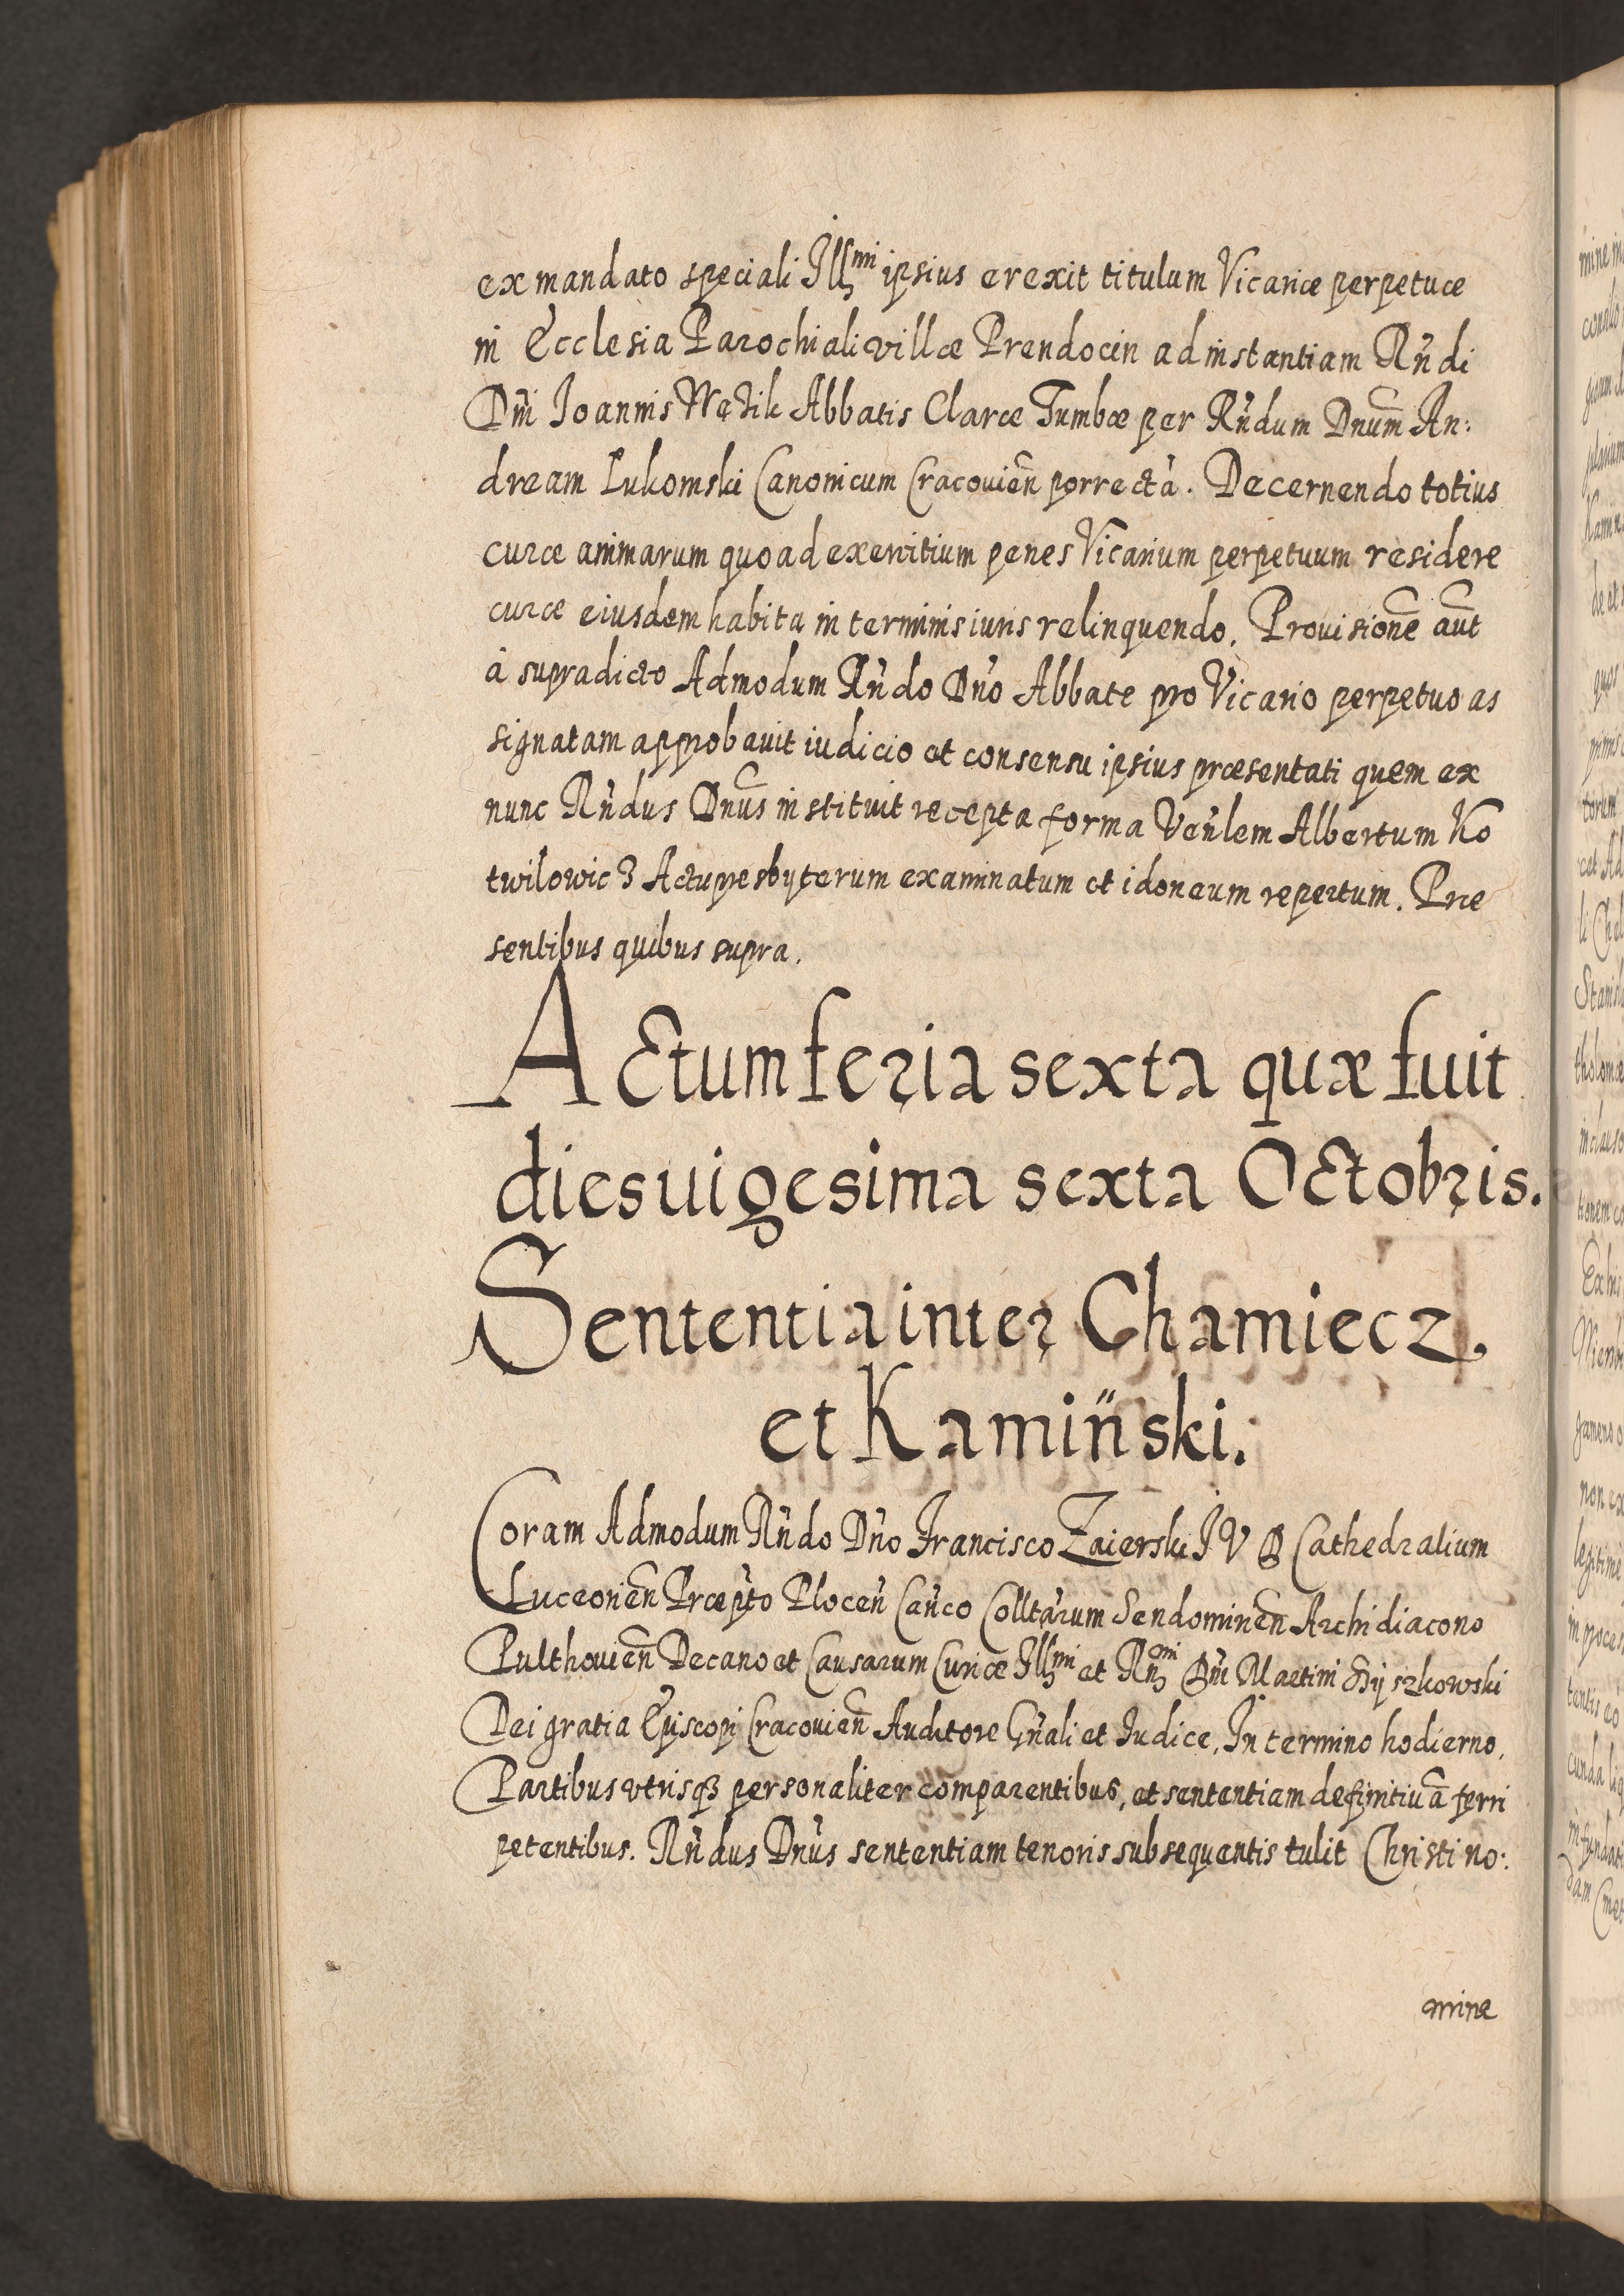 ex mandato speciali Illmi ipsius erexit titulum Vicariæ perpetuæ
in Ecclesia Parochiali villæ Prendocin ad instantiam Rndi
Dni Joannis Wężik Abbatis Claræ Tumbæ per Rndum Dnum An:
dream Lukomski Canonicum Cracouien porrectã. Decernendo totius
curæ animarum quoad exercitium penes Vicarium perpetuum residere
curæ eiusdem habita in terminis iuris relinquendo. Prouisionẽ aũt
à supradicto Admodum Rñdo Dño Abbate pro Vicario perpetuo as
signatam approbauit iudicio et consensu ipsius præsentati quem ex
nunc Rñdus Dnus instituit recepta forma Veñlem Albertum Ko
twilowicz Actupresbyterum examinatum et idoneum repertum. Præ
sentibus quibus supra.
Actum feria sexta quæ fuit
dies uigesima sexta Octobris.
Sententia inter Chamiecz.
et Kamiński.
Coram Admodum Rñdo Dño Francisco Zaierski J V D Cathedralium
Luceorien Præpto Plocen Canco Colltarum Sendomirien Archidiacono
Pulthouien Decano et Causarum Curiæ Illmi et Rmi Dni Martini Szyszkowski
Dei gratia Episcopi Cracouien Auditore Gñali et Iudice, In termino hodierno,
Partibus vtrisq3 personaliter comparentibus, et sententiam definitiuã ferri
petentibus. Rñdus Dnus sententiam tenoris subsequentis tulit Christi no:
mine